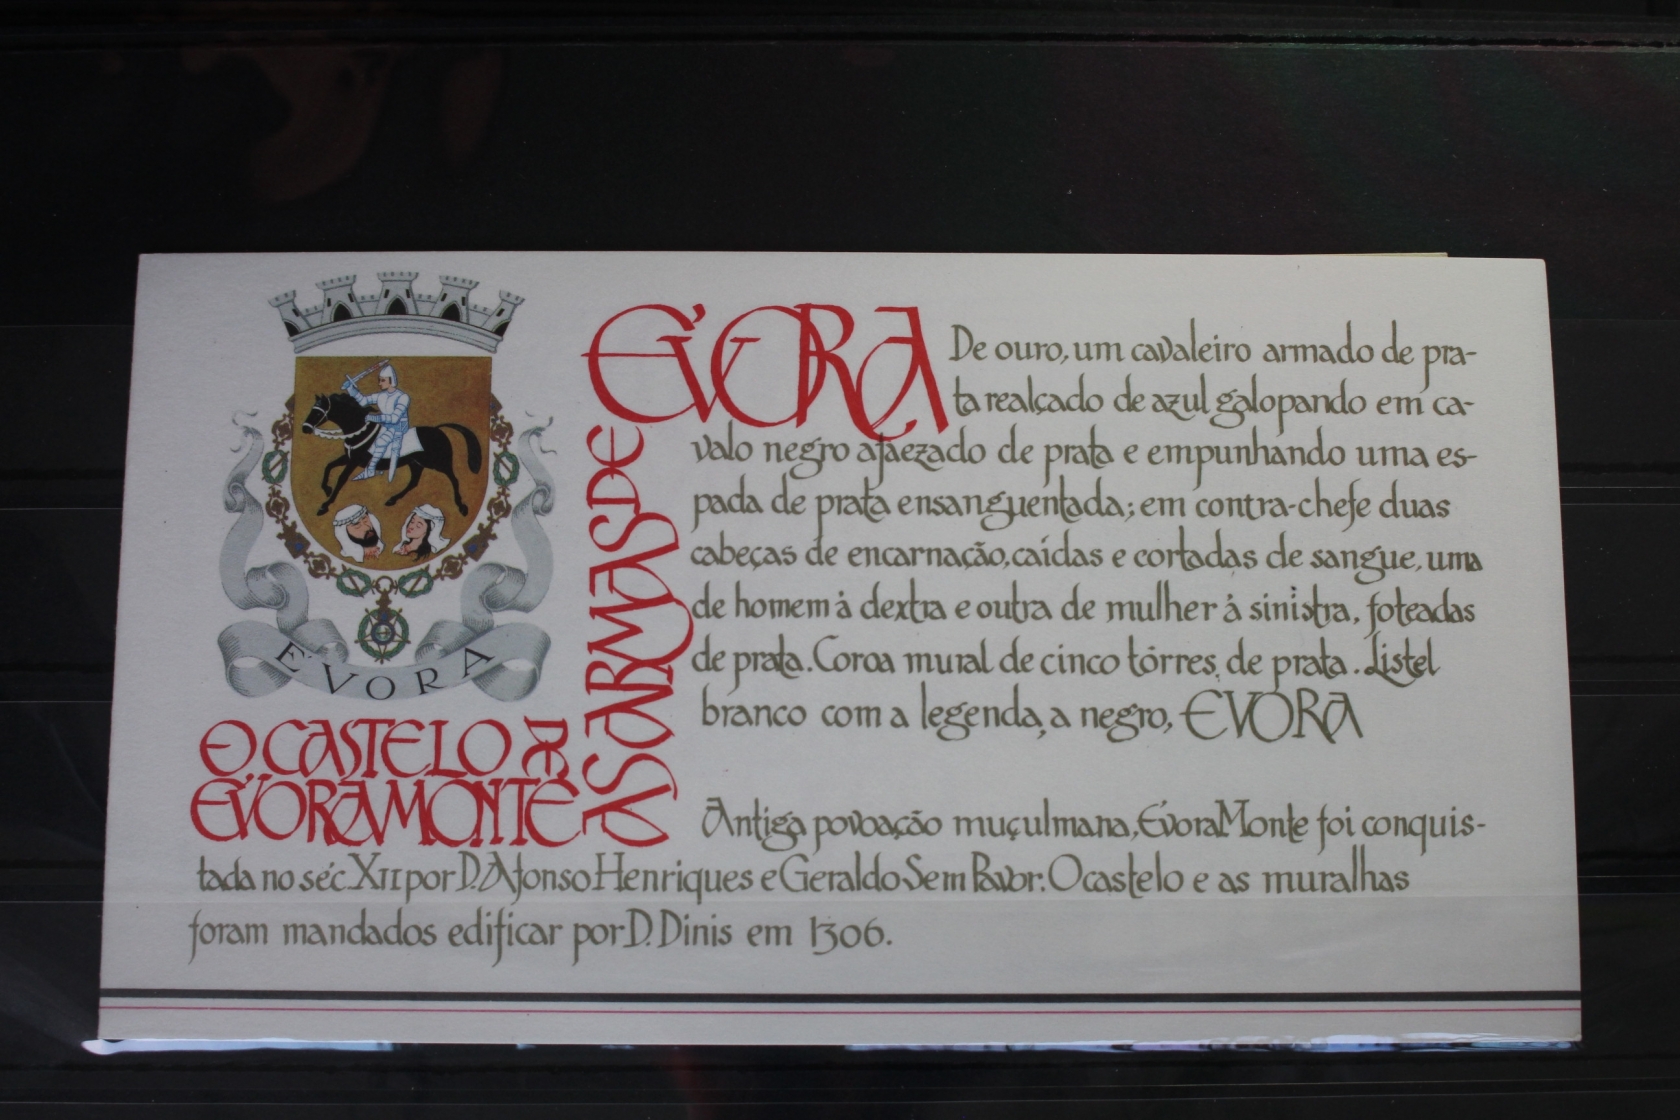 ÉVORA
AS ARMAS DE
ÉVORA
De ouro, um cavaleiro armado de pra-
ta realçado de azul galopando em ca-
valo negro ajaezado de prata e empunhando uma es-
pada de prata ensanguentada; em contra-chefe duas
cabeças de encarnação, caídas e cortadas de sangue, uma
de homem à dextra e outra de mulher à sinistra, foteadas
de prata. Coroa mural de cinco tôrres de prata. Listel
branco com a legenda, a negro, EVORA
O CASTELO DE
ÉVORAMONTE
Antiga povoação muçulmana, Évora Monte foi conquis-
tada no séc. XII por D. Afonso Henriques e Geraldo Sem Pavor. O castelo e as muralhas
foram mandados edificar por D. Dinis em 1306.